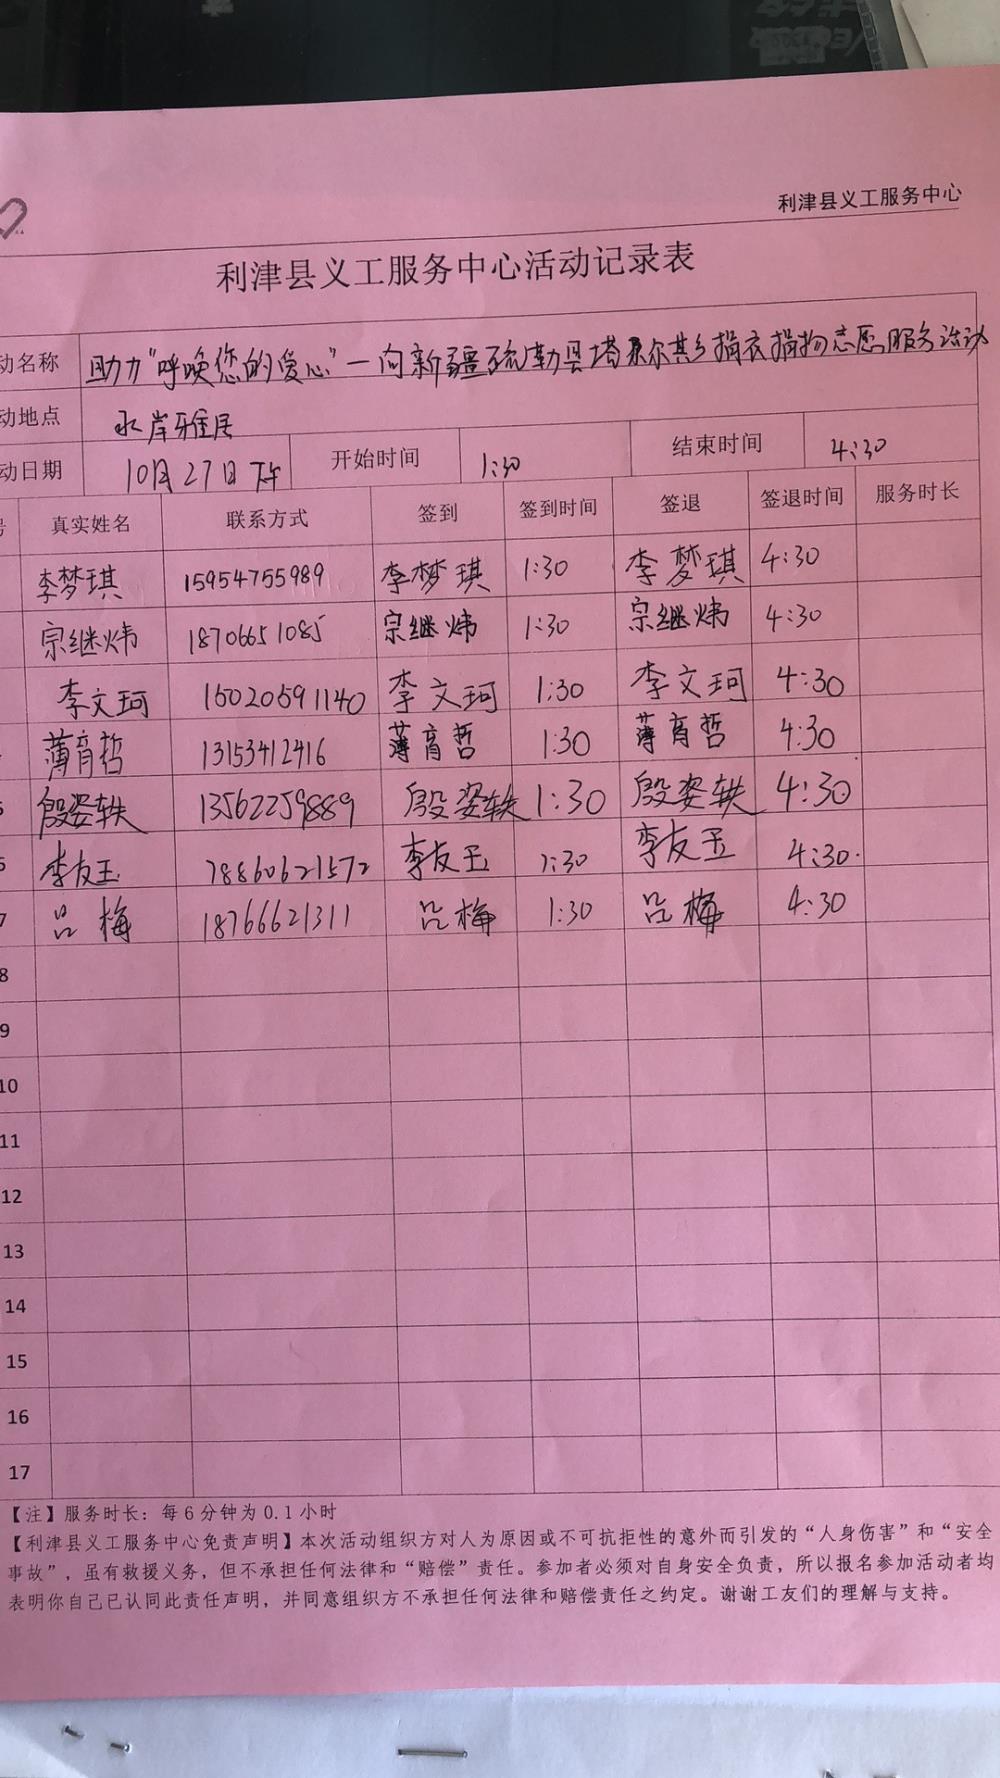 利津县义工服务中心
利津县义工服务中心活动记录表
动名称 助力"呼唤您的爱心"一向新疆疏勒县塔孜尔其乡捐衣捐物志愿服务活动
动地点 水岸雅居
动日期 10月27日下午 开始时间 1:30 结束时间 4:30
号 真实姓名 联系方式 签到 签到时间 签退 签退时间 服务时长
李梦琪 15954755989 李梦琪 1:30 李梦琪 4:30
宗继炜 18706651085 宗继炜 1:30 宗继炜 4:30
李文珂 15020591140 李文珂 1:30 李文珂 4:30
薄育哲 13153412416 薄育哲 1:30 薄育哲 4:30
5 殷姿轶 13562259889 殷姿轶 1:30 殷姿轶 4:30
6 李友玉 18860621572 李友玉 1:30 李友玉 4:30.
7 吕梅 18766621311 吕梅 1:30 吕梅 4:30
8
9
10
11
12
13
14
15
16
17
【注】服务时长：每6分钟为0.1小时
【利津县义工服务中心免责声明】本次活动组织方对人为原因或不可抗拒性的意外而引发的“人身伤害”和“安全
事故”，虽有救援义务，但不承担任何法律和“赔偿”责任。参加者必须对自身安全负责，所以报名参加活动者均
表明你自己已认同此责任声明，并同意组织方不承担任何法律和赔偿责任之约定。谢谢工友们的理解与支持。